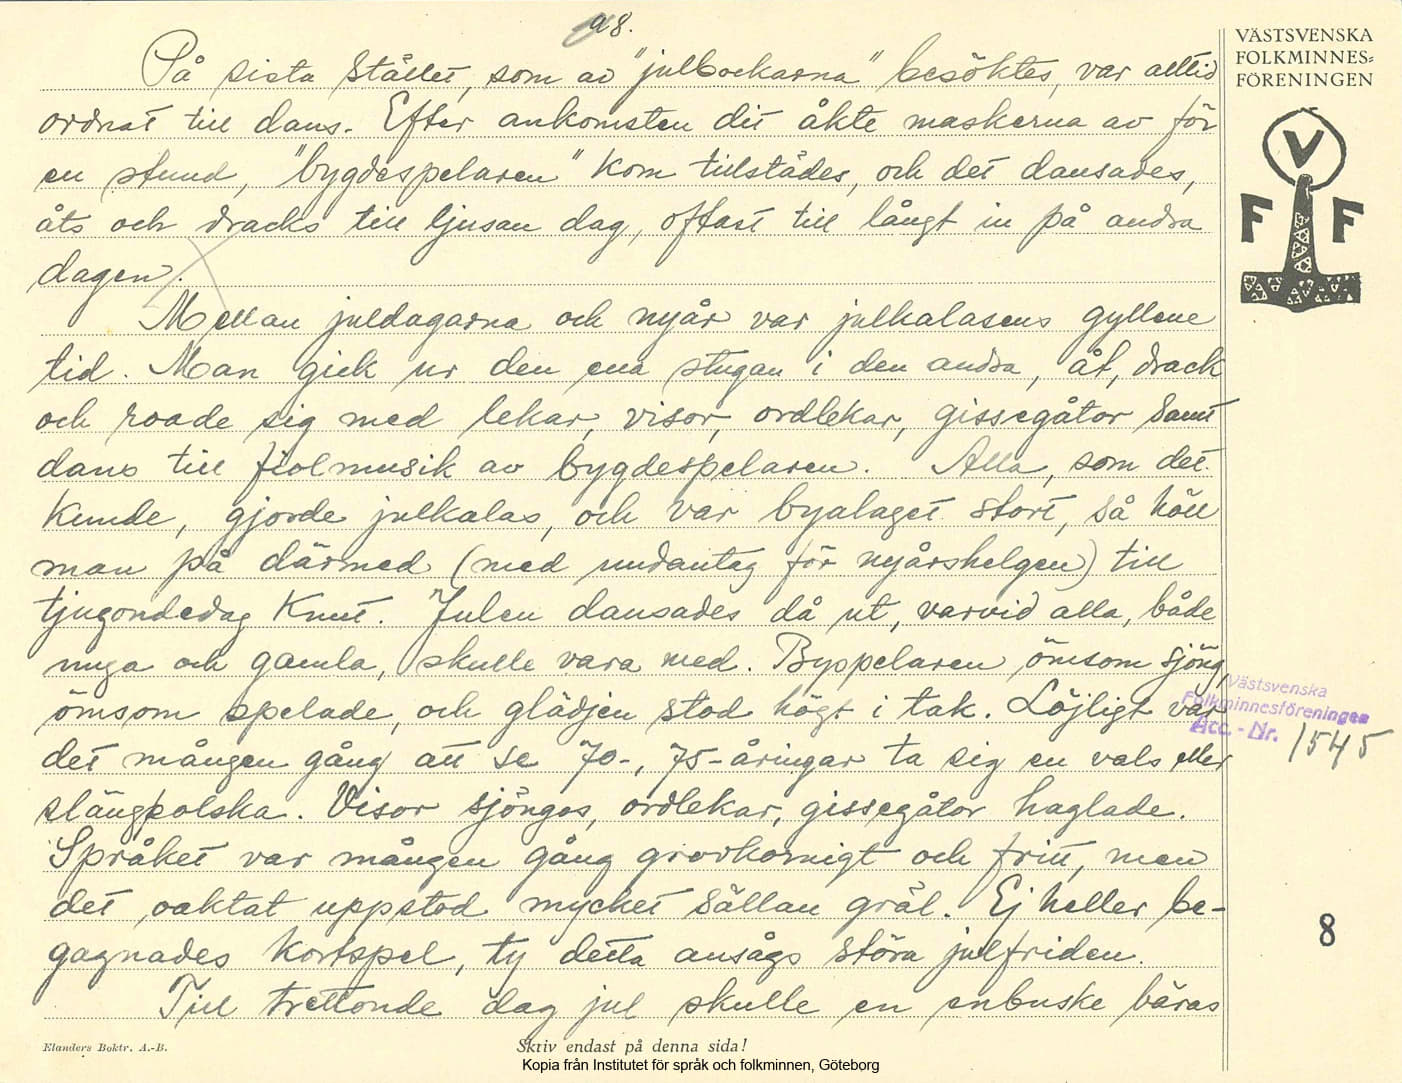 98.
VÄSTSVENSKA
FOLKMINNES=
FÖRENINGEN
V
F F
På sista stället, som av "julbockarna" besöktes, var alltid
ordnat till dans. Efter ankomsten dit åkte maskerna av för
en stund, "bygdespelaren" kom tillstädes, och det dansades,
åts och dracks till ljusan dag, oftast till långt in på andra
dagen.
Mellan juldagarna och nyår var julkalasens gyllene
tid. Man gick ur den ena stugan i den andra, åt, drack
och roade sig med lekar, visor, ordlekar, gissegåtor samt
dans till fiolmusik av bygdespelaren. Alla, som det
kunde, gjorde julkalas, och var byalaget stort, så höll
man på därmed (med undantag för nyårshelgen) till
tjugondedag Knut. Julen dansades då ut, varvid alla, både
unga och gamla, skulle vara med. Byspelaren ömsom sjöng,
ömsom spelade, och glädjen stod högt i tak. Löjligt var
det mången gång att se 70-, 75-åringar ta sig en vals eller
slängpolska. Visor sjöngos, ordlekar, gissegåtor haglade.
Språket var mången gång grovkornigt och fritt, men
det oaktat uppstod mycket sällan gräl. Ej heller be-
gagnades kortspel, ty detta ansågs störa julfriden.
Till trettonde dag jul skulle en enbuske bäras
Västsvenska
Folkminnesföreningen
Acc. - Nr. 1545
8
Elanders Boktr. A.-B.
Skriv endast på denna sida!
Kopia från Institutet för språk och folkminnen, Göteborg